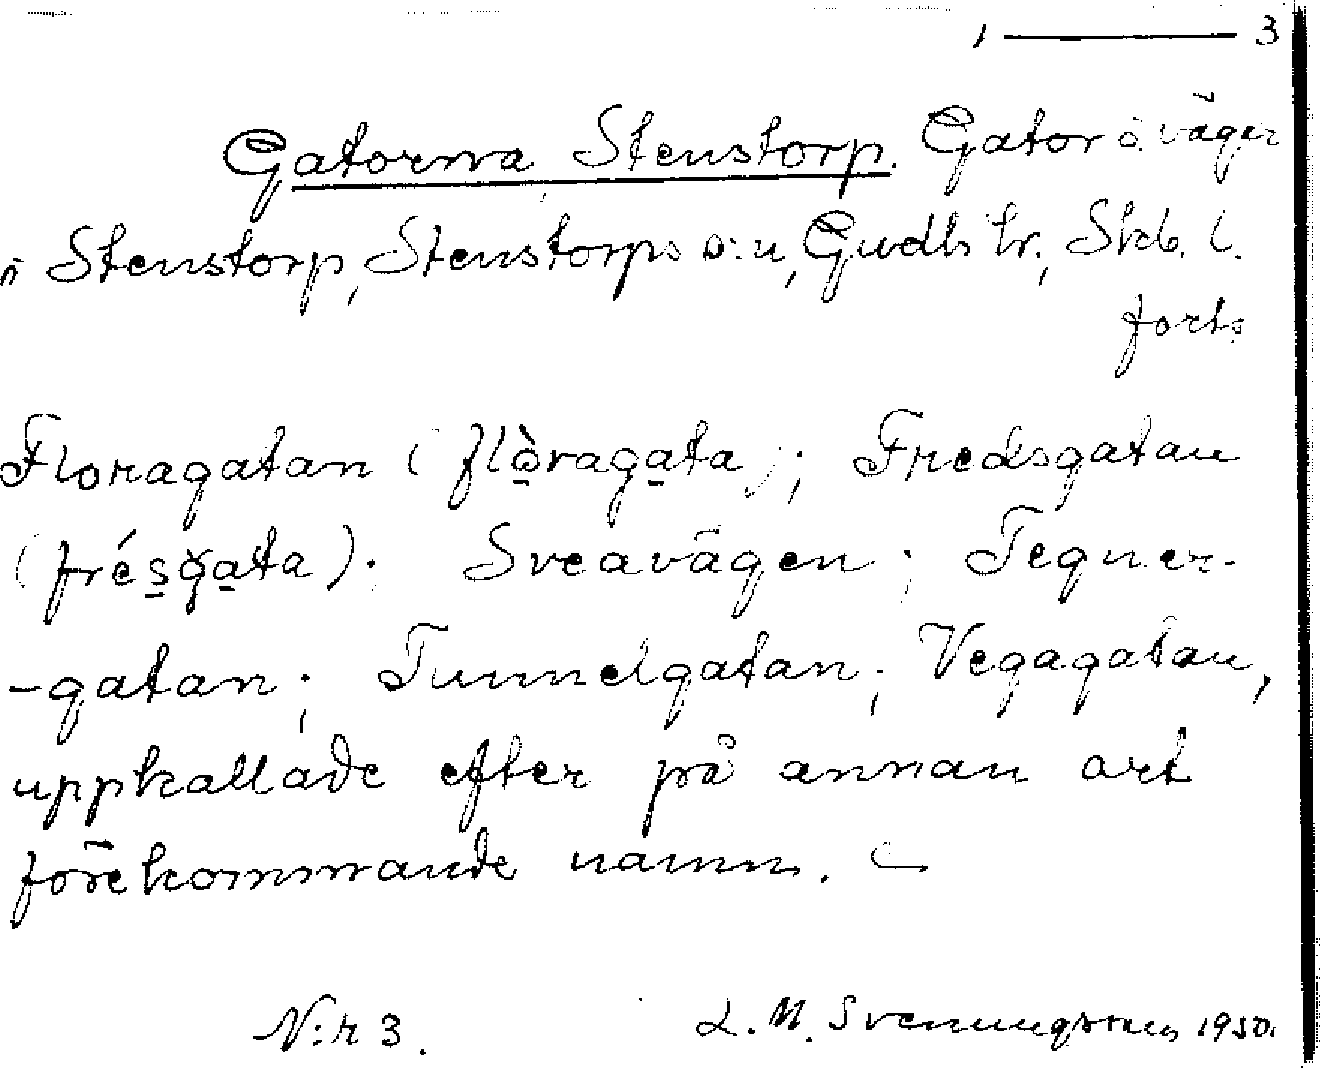 1 — 3
Gatorna, Stenstorp. Gator o. vägar
i Stenstorp, Stenstorps s:n, Gudh. hr., Skb. l.
forts.
Floragatan (flòragata); Fredsgatan
(frésgata); Sveavägen; Tegner-
-gatan; Tunnelgatan; Vegagatan,
uppkallade efter på annan ort
förekommande namn.
N:r 3. L. M. Svenungsson 1950.